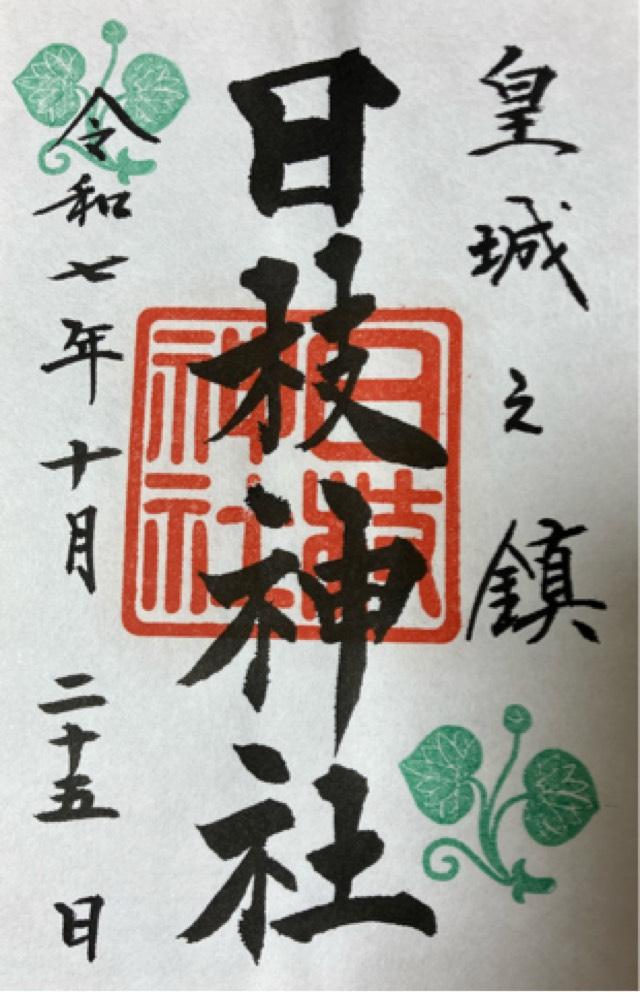 皇城之鎮
日枝神社
日枝神社
令和七年十月二十五日